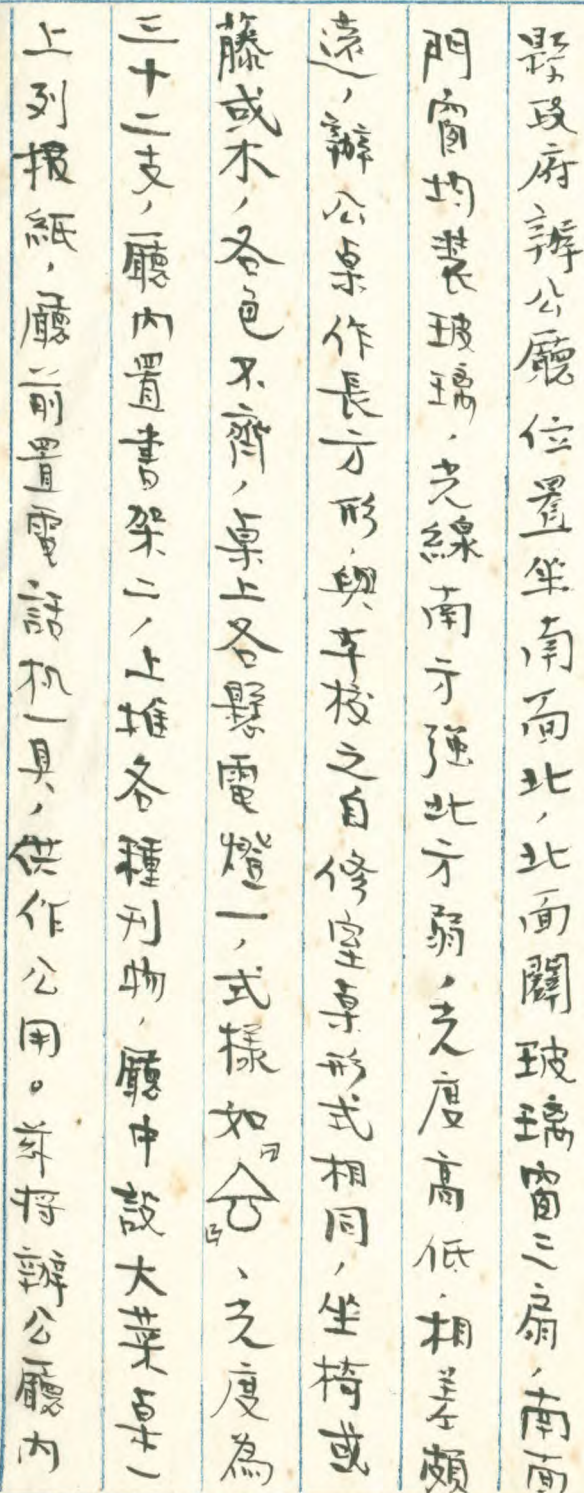 縣政府辦公廳位置坐南面北，北面闢玻璃窗三扇，南面
門窗均裝玻璃，光線南方強北方弱，光度高低，相差頗
遠，辦公桌作長方形，與本校之自修室桌形式相同，坐椅或
藤或木，各色不齊，桌上各懸電燈一，式樣如『』、光度為
三十二支，廳內置書架二，上堆各種刊物，廳中設大菜桌一
上列報紙，廳前置電話机一具，供作公用。茲將辦公廳內